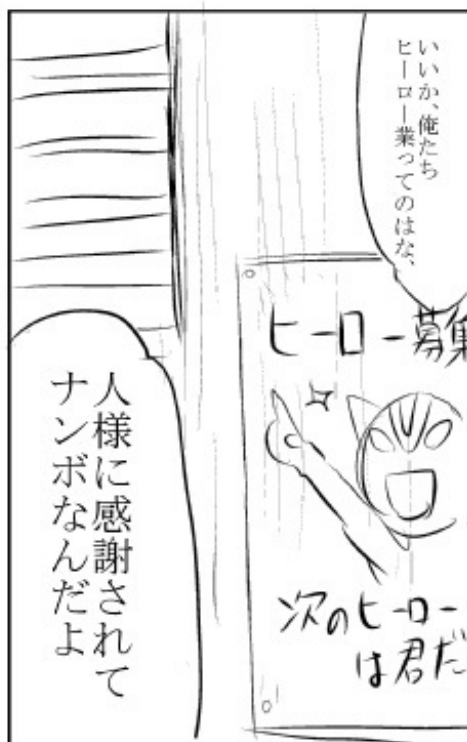 いいか、俺たち
ヒーロー業ってのはな、
ヒーロー募集
次のヒーロー
は君だ
人様に感謝されて
ナンボなんだよ